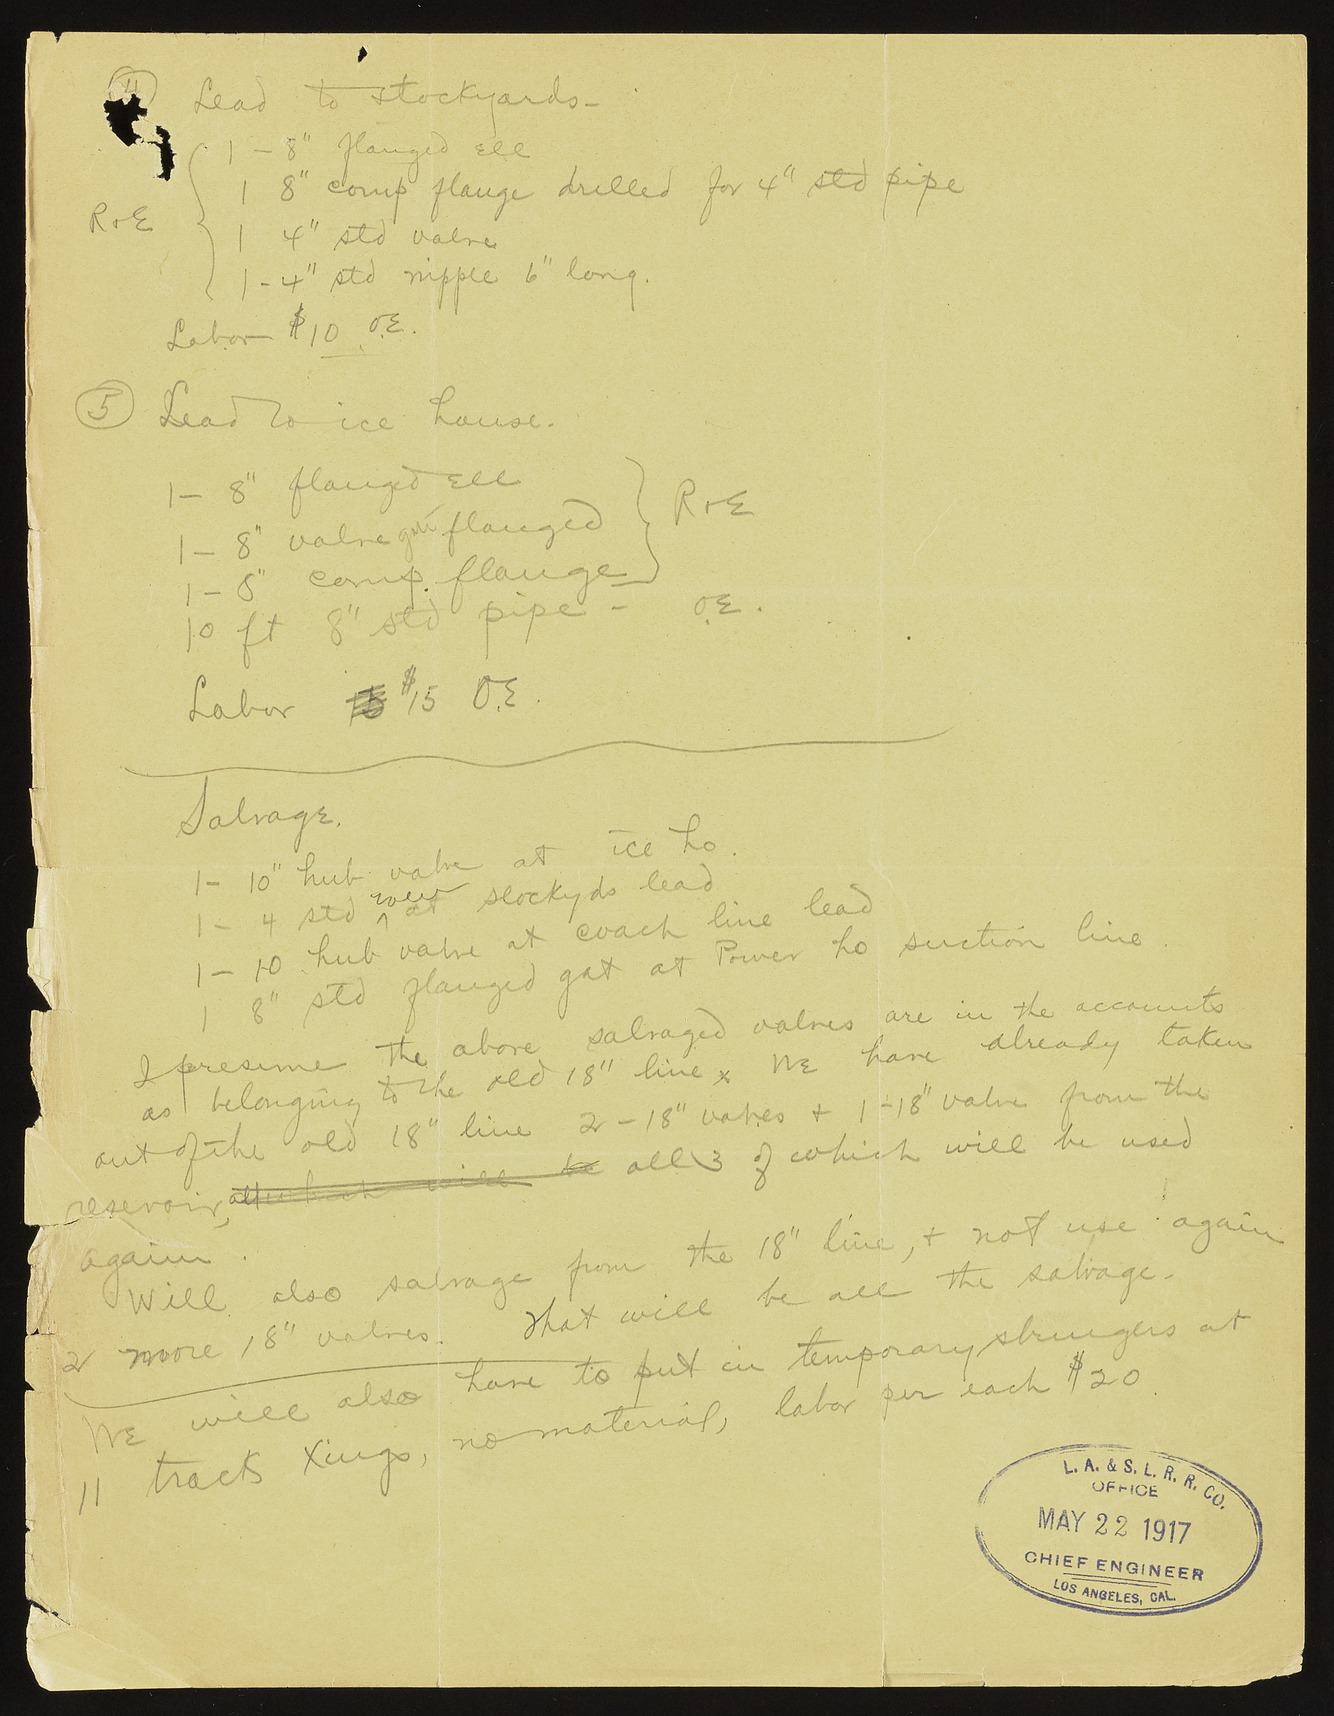 4 Lead to stockyards -
1 - 8" flanged ell
1 8" comp flange drilled for 4" std pipe
R+E
1 4" std valve
1 - 4" std nipple 6" long.
Labor $10 O.E.
5 Lead to ice house.
1 - 8" flanged ell
R+E
1 - 8" valve gate flanged
1 - 8" comp. flange
10 ft 8" std pipe - O.E.
Labor 15 $15 O.E.
Salvage.
1 - 10" hub valve at ice ho.
1 - 4 std at stockyds lead
1 - 10 hub valve at coach line lead
1 8" std flanged gat at Power ho suction line.
I presume the above salvaged valves are in the accounts
as belonging to the old 18" line x We have already taken
out of the old 18" line 2 - 18" valves + 1 - 18" valve from the
reservoir, all which will be all 3 of which will be used
again.
Will also salvage from the 18" line, + not use again
2 more 18" valves. That will be all the salvage.
We will also have to put in temporary stringers at
11 track Xings, no material, labor per each $20.
L. A. & S. L. R. R. CO.
OFFICE
MAY 22 1917
CHIEF ENGINEER
LOS ANGELES, CAL.